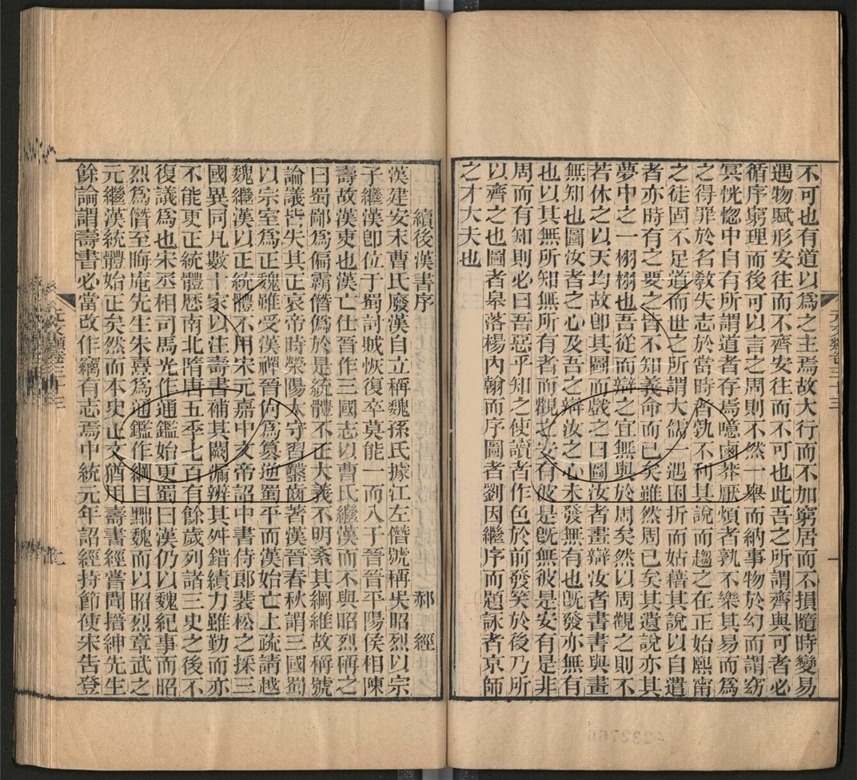 不可也有道以爲之主焉故大行而不加窮居而不損隨時變易
遇物賦形安往而不齊安往而不可也此吾之所謂齊與可者必
循序窮理而後可以言之周則不然一舉而納事物於幻而謂窈
冥恍惚中自有所謂道者存焉噫鹵莽厭煩者孰不樂其易而爲
之得罪於名敎失志於當時者孰不利其說而趨之在正始熙甯
之徒固不足道而世之所謂大儒一遇困折而姑藉其說以自遣
者亦時有之要之皆不知義命而已矣雖然周已矣其遺說亦其
夢中之一栩栩也吾從而辯之宜無與於周矣然以周觀之則不
若休之以天均故卽其圖而戲之曰圖汝者畫辯汝者書書與畫
無知也圖汝者之心及吾之辯汝之心未發無有也旣發亦無有
也以其無所知無所有者而觀之安有彼是旣無彼是安有是非
周而有知則必曰吾惡乎知之使讀者作色於前發笑於後乃所
以齊之也圖者皋落楊內翰而序圖者劉因繼序而題詠者京師
之才大夫也
元文類卷三十三
續後漢書序
郝經
漢建安末曹氏廢漢自立稱魏孫氏據江左僭號稱吳昭烈以宗
子繼漢卽位于蜀討賊恢復卒莫能一而入于晉晉平陽侯相陳
壽故漢吏也漢亡仕晉作三國志以曹氏繼漢而不與昭烈稱之
曰蜀鄙爲偏霸僭僞於是統體不正大義不明紊其綱維故稱號
論議皆失其正哀帝時滎陽太守習鑿齒著漢晉春秋謂三國蜀
以宗室爲正魏雖受漢禪晉尙爲篡逆蜀平而漢始亡上疏請越
魏繼漢以正統體不用宋元嘉中文帝詔中書侍郞裴松之採三
國異同凡數十家以注壽書補其闕漏辨其舛錯績力雖勤而亦
不能更正統體歷南北隋唐五季七百有餘歲列諸三史之後不
復議爲也宋丞相司馬光作通鑑始更蜀曰漢仍以魏紀事而昭
烈爲僭至晦庵先生朱熹爲通鑑作綱目黜魏而以昭烈章武之
元繼漢統體始正矣然而本史正文猶用壽書經嘗聞搢紳先生
餘論謂壽書必當改作竊有志焉中統元年詔經持節使宋告登
元文類卷三十三